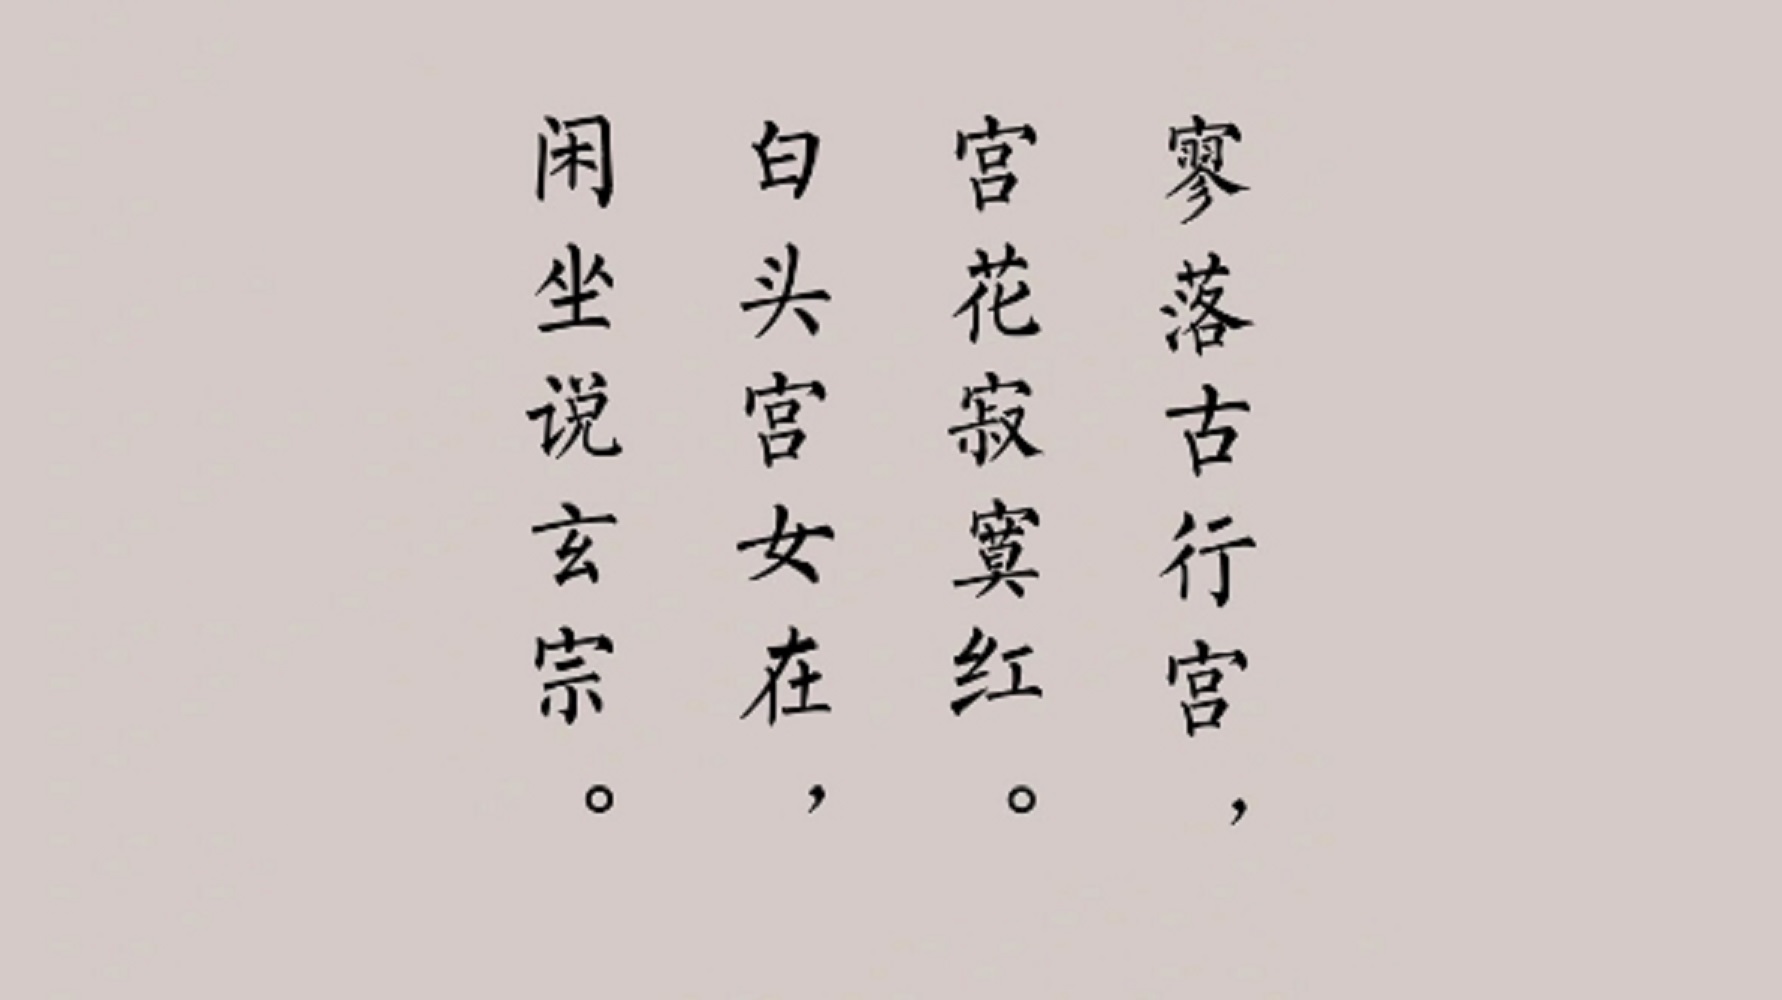 寥落古行宫，
宫花寂寞红。
白头宫女在，
闲坐说玄宗。